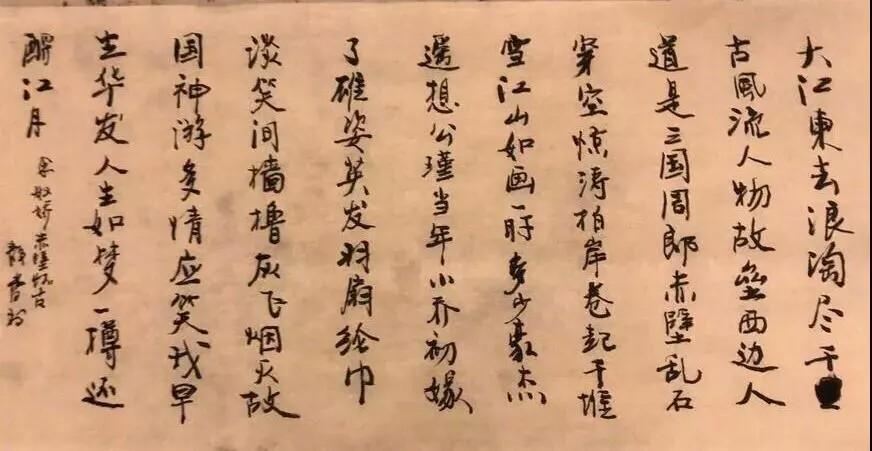 大江東去浪淘尽千
古風流人物故垒西边人
道是三国周郎赤壁乱石
穿空惊涛拍岸卷起千堆
雪江山如画一时多少豪杰
遥想公瑾当年小乔初嫁
了雄姿英发羽扇纶巾
谈笑间樯橹灰飞烟灭故
国神游多情应笑我早
生华发人生如梦一樽还
酹江月
念奴娇赤壁怀古